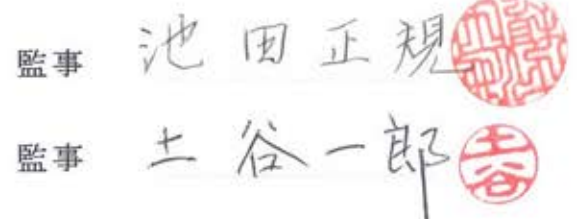 監事 池田正規
監事 土谷一郎 土谷